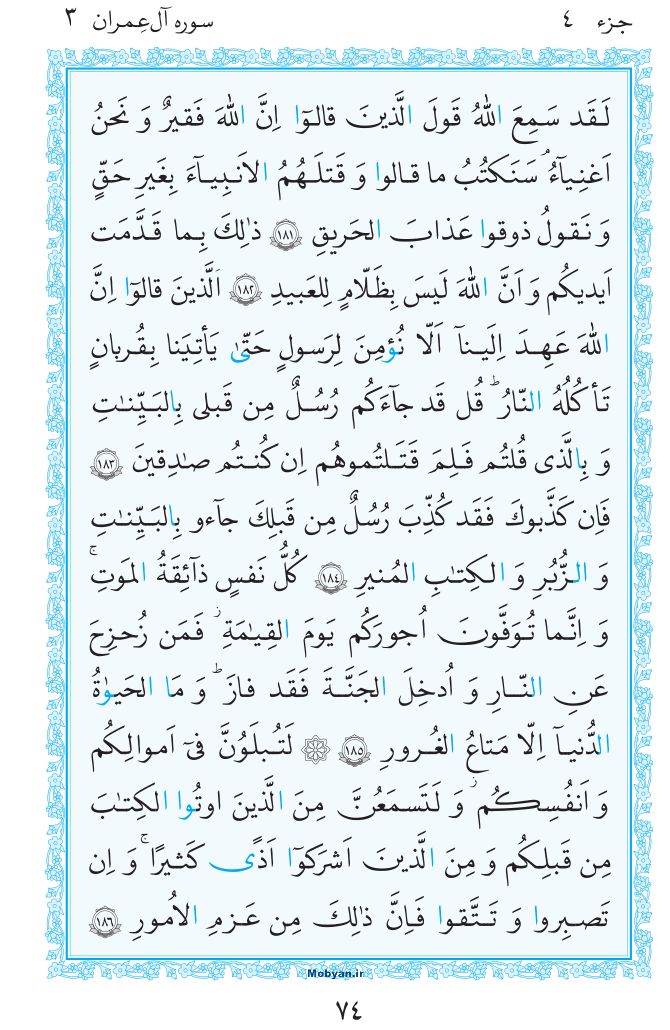 جزء ٤
سوره آل‌عِمران ٣
لَقَد سَمِعَ اللهُ قَولَ الَّذينَ قالوٓا اِنَّ اللهَ فَقيرٌ وَ نَحنُ
اَغنِيآءُ ۘ سَنَكتُبُ ما قالوا وَ قَتلَهُمُ الاَنبِيآءَ بِغَيرِ حَقٍّ
وَ نَقولُ ذوقوا عَذابَ الحَريقِ ﴿١٨١﴾ ذٰلِكَ بِما قَدَّمَت
اَيديكُم وَ اَنَّ اللهَ لَيسَ بِظَلّامٍ لِلعَبيدِ ﴿١٨٢﴾ اَلَّذينَ قالوٓا اِنَّ
اللهَ عَهِدَ اِلَينآ اَلّا نُؤمِنَ لِرَسولٍ حَتّىٰ يَأتِيَنا بِقُربانٍ
تَأكُلُهُ النّارُ ؕ قُل قَد جآءَكُم رُسُلٌ مِن قَبلی بِالبَيِّنٰتِ
وَ بِالَّذی قُلتُم فَلِمَ قَتَلتُموهُم اِن كُنتُم صٰدِقينَ ﴿١٨٣﴾
فَاِن كَذَّبوكَ فَقَد كُذِّبَ رُسُلٌ مِن قَبلِكَ جآءو بِالبَيِّنٰتِ
وَ الزُّبُرِ وَ الكِتٰبِ المُنيرِ ﴿١٨٤﴾ كُلُّ نَفسٍ ذآئِقَةُ المَوتِ ۚ
وَ اِنَّما تُوَفَّونَ اُجورَكُم يَومَ القِيٰمَةِ ۖ فَمَن زُحزِحَ
عَنِ النّارِ وَ اُدخِلَ الجَنَّةَ فَقَد فازَ ؕ وَ مَا الحَيوٰةُ
الدُّنيآ اِلّا مَتاعُ الغُرورِ ﴿١٨٥﴾ ۞ لَتُبلَوُنَّ فیٓ اَموالِكُم
وَ اَنفُسِكُم ۖ وَ لَتَسمَعُنَّ مِنَ الَّذينَ اوتُوا الكِتٰبَ
مِن قَبلِكُم وَ مِنَ الَّذينَ اَشرَكوٓا اَذًى كَثيرًا ۚ وَ اِن
تَصبِروا وَ تَتَّقوا فَاِنَّ ذٰلِكَ مِن عَزمِ الاُمورِ ﴿١٨٦﴾
Mobyan.ir
٧٤